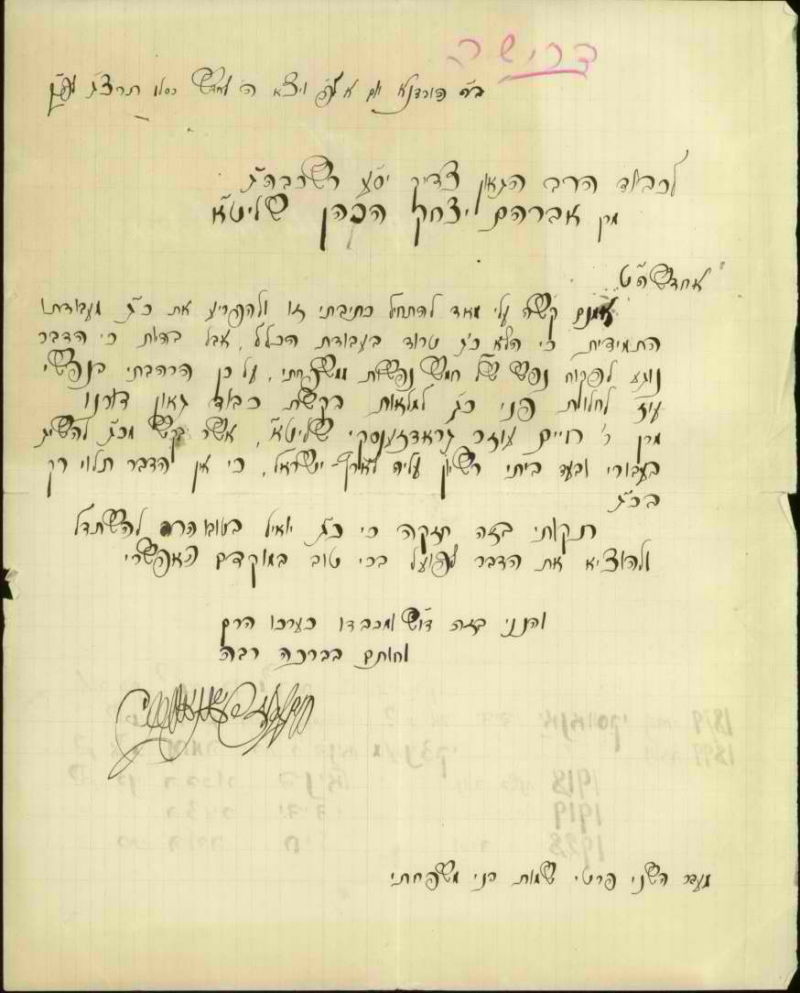 דרישה
ב"ה הורדנא יום א' לס' ויצא ה' לחדש כסלו תרצ"ג לפ"ק
לכבוד הרב הגאון צדיק יסוע רשכבה"ג
מרן אברהם יצחק הכהן שליט"א
אחדשה"ט
אמנם קשה עלי מאד להתחיל כתיבתי זו ולהפריע את כ"ג מעבודתו
התמידית כי הלא כ"ג טרוד בעבודת הכלל, אבל בהיות כי הדבר
נוגע לפקוח נפש של חמש נפשות ממשפחתי, על כן הרהבתי בנפשי
עוז לחלות פני כ"ג למלאות בקשת כבוד גאון דורנו
מרן ר' חיים עוזר גראדזענסקי שליט"א, אשר בקש מכ"ג להשיג
בעבורי ובעד ביתי רשיון עליה לארץ ישראל, כי אין הדבר תלוי רק
בכ"ג
תקותי בזה חזקה כי כ"ג יואיל בטובו הרם להשתדל
ולהוציא את הדבר לפועל בכי טוב במוקדם האפשרי
והנני בזה דו"ש ומכבדו כערכו הרם
וחותם בברכה רבה
מעבר השני פרטי שמות בני משפחתי